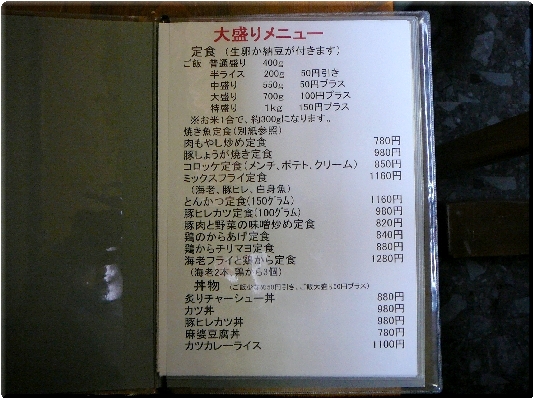 大盛りメニュー
定食 (生卵か納豆が付きます)
ご飯 普通盛り 400g
半ライス 200g 50円引き
中盛り 550g 50円プラス
大盛り 700g 100円プラス
特盛り 1kg 150円プラス
※お米1合で、約300gになります。
焼き魚定食(別紙参照)
肉もやし炒め定食 780円
豚しょうが焼き定食 980円
コロッケ定食(メンチ、ポテト、クリーム) 850円
ミックスフライ定食 1160円
(海老、豚ヒレ、白身魚)
とんかつ定食(150グラム) 1160円
豚ヒレカツ定食(100グラム) 980円
豚肉と野菜の味噌炒め定食 820円
鶏のからあげ定食 840円
鶏からチリマヨ定食 880円
海老フライと鶏から定食 1280円
(海老2本、鶏から3個)
丼物 (ご飯少なめ50円引き、ご飯大盛り50円プラス)
炙りチャーシュー丼 880円
カツ丼 980円
豚ヒレカツ丼 980円
麻婆豆腐丼 780円
カツカレーライス 1100円